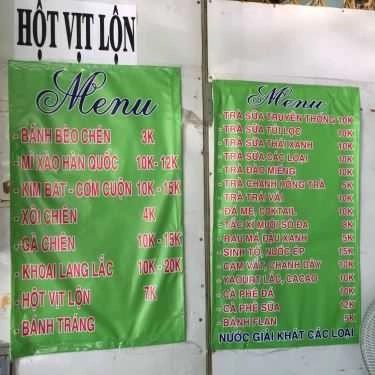 HỘT VỊT LỘN
Menu
- BÁNH BÈO CHÉN 3K
- MÌ XÀO HÀN QUỐC 10K - 12K
- KIM BAT - CƠM CUỘN 10K - 15K
- XÔI CHIÊN 4K
- GÀ CHIÊN 10K - 15K
- KHOAI LANG LẮC 10K - 20K
- HỘT VỊT LỘN 7K
- BÁNH TRÁNG
Menu
- TRÀ SỮA TRUYỀN THỐNG 10K
- TRÀ SỮA TÚI LỌC 10K
- TRÀ SỮA THÁI XANH 10K
- TRÀ SỮA CÁC LOẠI 10K
- TRÀ ĐÀO MIẾNG 10K
- TRÀ CHANH, HỒNG TRÀ 5K
- TRÀ TRÁI VẢI 10K
- ĐÁ ME, COKTAIL 10K
- TẮC XÍ MUỘI SÔ ĐA 8K
- RAU MÁ ĐẬU XANH 5K
- SINH TỐ, NƯỚC ÉP 15K
- CAM VẮT, CHANH DÂY 10K
- YAOURT LẮC, CACAO 10K
- CÀ PHÊ ĐÁ 10K
- CÀ PHÊ SỮA 12K
- BÁNH FLAN 5K
NƯỚC GIẢI KHÁT CÁC LOẠI